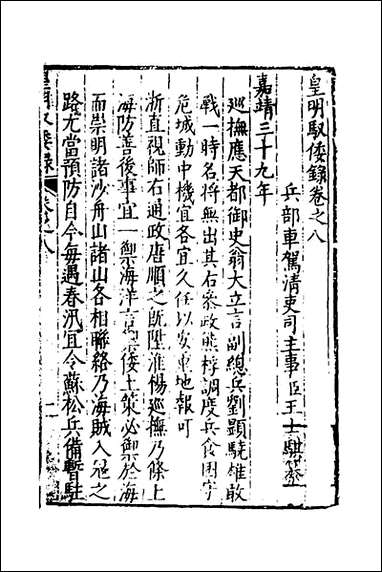 皇明馭倭錄卷之八
兵部車駕清吏司主事臣王士騏纂
嘉靖三十九年
巡撫應天都御史翁大立言副總兵劉顯驍雄敢
戰一時名將無出其右參政熊桴調度兵食困守
危城動中機宜各宜久任以安地報可
浙直視師右通政唐順之既陞淮楊巡撫乃條上
海防善後事宜一禦海洋言禦倭上策必禦於海
而崇明諸沙舟山諸山各相聯絡乃海賊入寇之
路尤當預防自今每遇春汛宜令蘇松兵備暫駐
皇明馭倭錄 卷之八 一